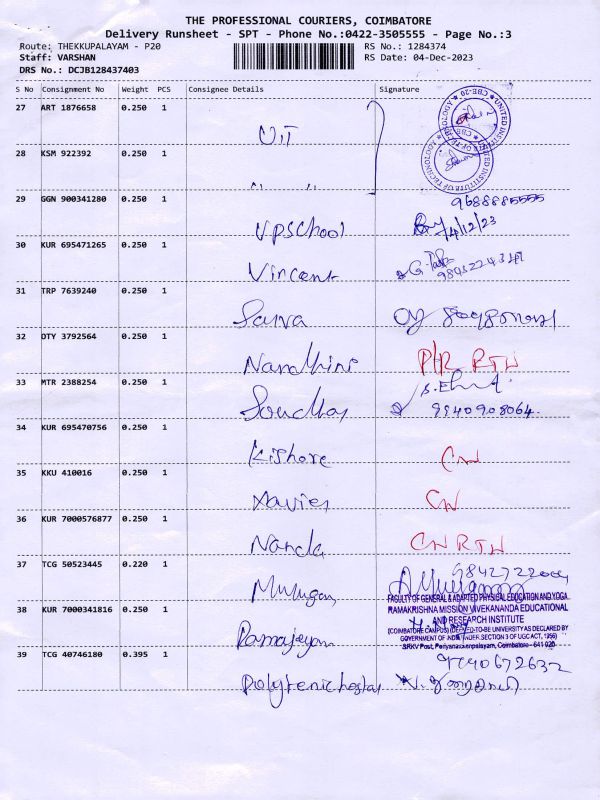 THE PROFESSIONAL COURIERS, COIMBATORE
Delivery Runsheet - SPT - Phone No.:0422-3505555 - Page No.:3
Route: THEKKUPALAYAM - P20 RS No.: 1284374
Staff: VARSHAN RS Date: 04-Dec-2023
DRS No.: DCJB128437403
S No Consignment No Weight PCS Consignee Details Signature
27 ART 1876658 0.250 1
UIT
28 KSM 922392 0.250 1
" "
29 GGN 900341280 0.250 1 9688885555
VPSchool 4/12/23
30 KUR 695471265 0.250 1
Vincent
31 TRP 7639240 0.250 1
Sarva
32 OTY 3792564 0.250 1
Nandhini P/R RTN
33 MTR 2388254 0.250 1
9940908064
34 KUR 695470756 0.250 1
Kishore CN
35 KKU 410016 0.250 1
Xavier CN
36 KUR 7000576877 0.250 1
Nanda CN RTN
37 TCG 50523445 0.220 1
Murugan
FACULTY OF GENERAL & ADAPTED PHYSICAL EDUCATION AND YOGA
38 KUR 7000341816 0.250 1 RAMAKRISHNA MISSION VIVEKANANDA EDUCATIONAL
AND RESEARCH INSTITUTE
Ramajeyam (COIMBATORE CAMPUS) (DEEMED-TO-BE UNIVERSITY AS DECLARED BY
GOVERNMENT OF INDIA UNDER SECTION 3 OF UGC ACT, 1956)
SRKV Post, Periyanaickenpalayam, Coimbatore - 641 020
39 TCG 40746180 0.395 1 9740672632